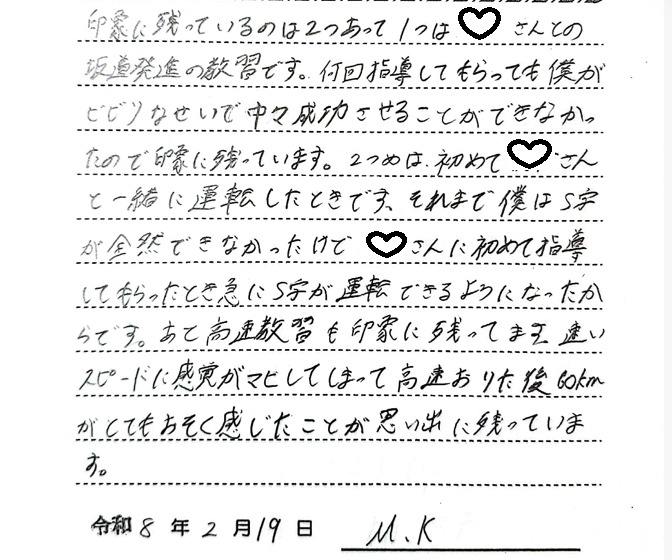 印象に残っているのは2つあって1つは♡さんとの
坂道発進の教習です。何回指導してもらっても僕が
ビビリなせいで中々成功させることができなかっ
たので印象に残っています。2つめは、初めて♡さん
と一緒に運転したときです、それまで僕はS字
が全然できなかったけで♡さんに初めて指導
してもらったとき急にS字が運転できるようになったか
らです。あと高速教習も印象に残ってます。速い
スピードに感覚がマヒしてしまって高速おりた後60km
がとてもおそく感じたことが思い出に残っていま
す。
令和8年2月19日 M.K